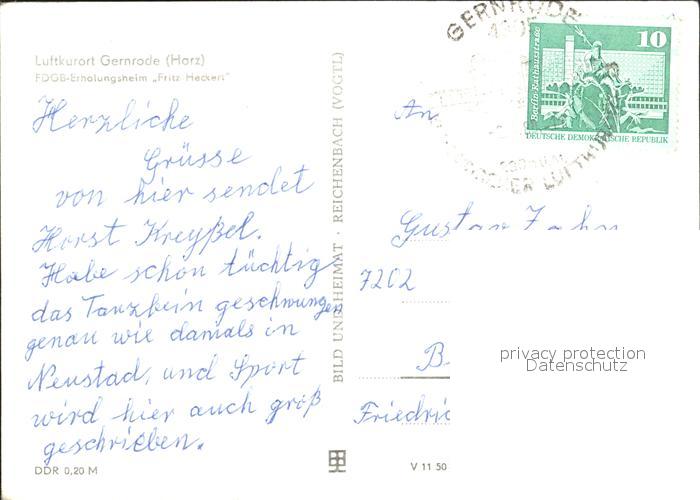 Luftkurort Gernrode (Harz)
FDGB-Erholungsheim „Fritz Heckert"
Herzliche
Grüsse
von hier sendet
Horst Kreyßel.
Habe schon tüchtig
das Tanzbein geschwungen
genau wie damals in
Neustad, und Sport
wird hier auch groß
geschrieben.
DDR 0,20 M
BILD UND HEIMAT · REICHENBACH (VOGTL)
V 11 50
GERNRODE
LUFTKURORT
10
Berlin, Rathausstraße
DEUTSCHE DEMOKRATISCHE REPUBLIK
An
Gustav
7202
B
Friedric
privacy protection
Datenschutz